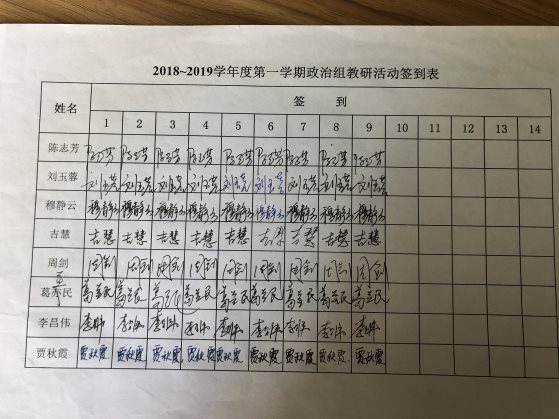 2018~2019学年度第一学期政治组教研活动签到表
姓名 签 到
1 2 3 4 5 6 7 8 9 10 11 12 13 14
陈志芳 陈志芳 陈志芳 陈志芳 陈志芳 陈志芳 陈志芳 陈志芳 陈志芳 陈志芳
刘玉蓉 刘玉蓉 刘玉蓉 刘玉蓉 刘玉蓉 刘玉蓉 刘玉蓉 刘玉蓉 刘玉蓉 刘玉蓉
穆静云 穆静云 穆静云 穆静云 穆静云 穆静云 穆静云 穆静云 穆静云 穆静云
吉慧 吉慧 吉慧 吉慧 吉慧 吉慧 吉慧 吉慧 吉慧 吉慧
周剑 周剑 周剑 周剑 周剑 周剑 周剑 周剑 周剑
葛亦民
李昌伟 李昌伟 李昌伟 李昌伟 李昌伟 李昌伟 李昌伟 李昌伟 李昌伟 李昌伟
贾秋霞 贾秋霞 贾秋霞 贾秋霞 贾秋霞 贾秋霞 贾秋霞 贾秋霞 贾秋霞 贾秋霞